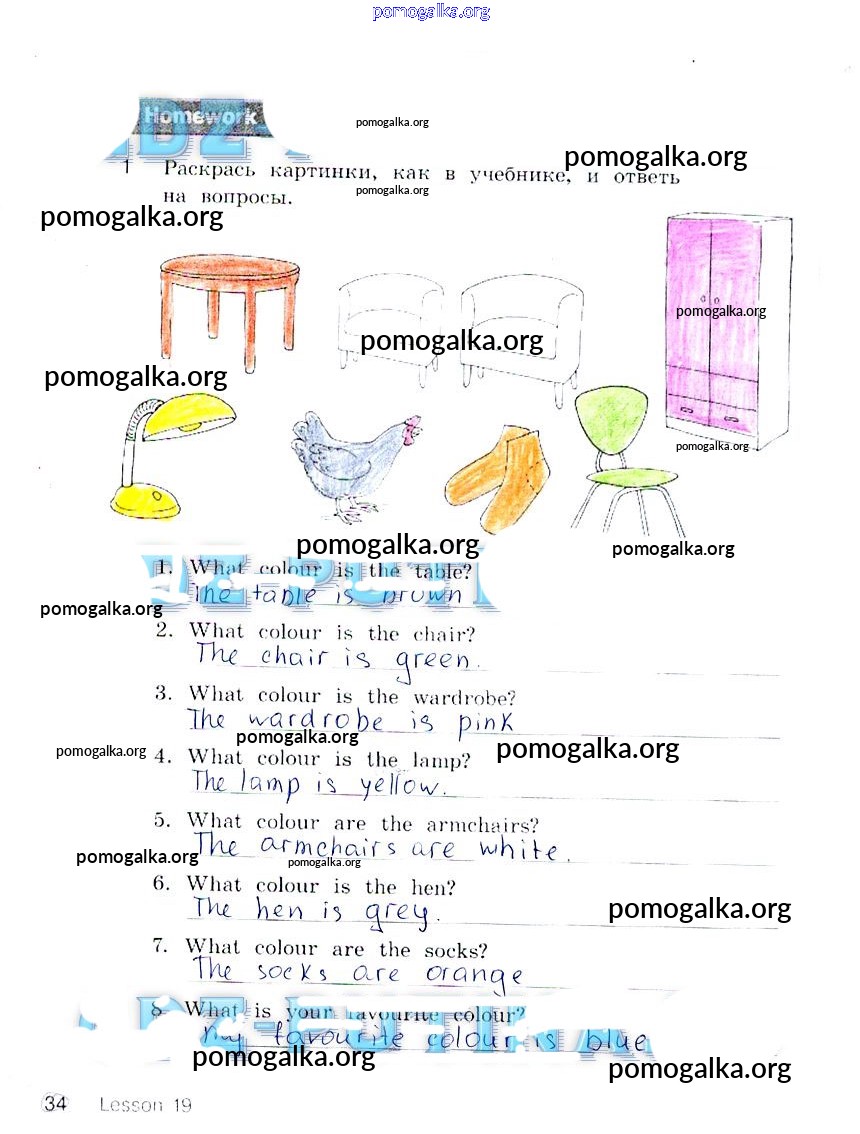 pomogalka.org
Homework
pomogalka.org
1 Раскрась картинки, как в учебнике, и ответь
на вопросы.
pomogalka.org
pomogalka.org
pomogalka.org
pomogalka.org
pomogalka.org
pomogalka.org
pomogalka.org
pomogalka.org
pomogalka.org
1. What colour is the table?
The table is brown
pomogalka.org
2. What colour is the chair?
The chair is green.
3. What colour is the wardrobe?
The wardrobe is pink
pomogalka.org
pomogalka.org
pomogalka.org
4. What colour is the lamp?
The lamp is yellow.
5. What colour are the armchairs?
The armchairs are white.
pomogalka.org
pomogalka.org
6. What colour is the hen?
The hen is grey.
pomogalka.org
7. What colour are the socks?
The socks are orange
8 What is your favourite colour?
my favourite colour is blue
pomogalka.org
pomogalka.org
34 Lesson 19